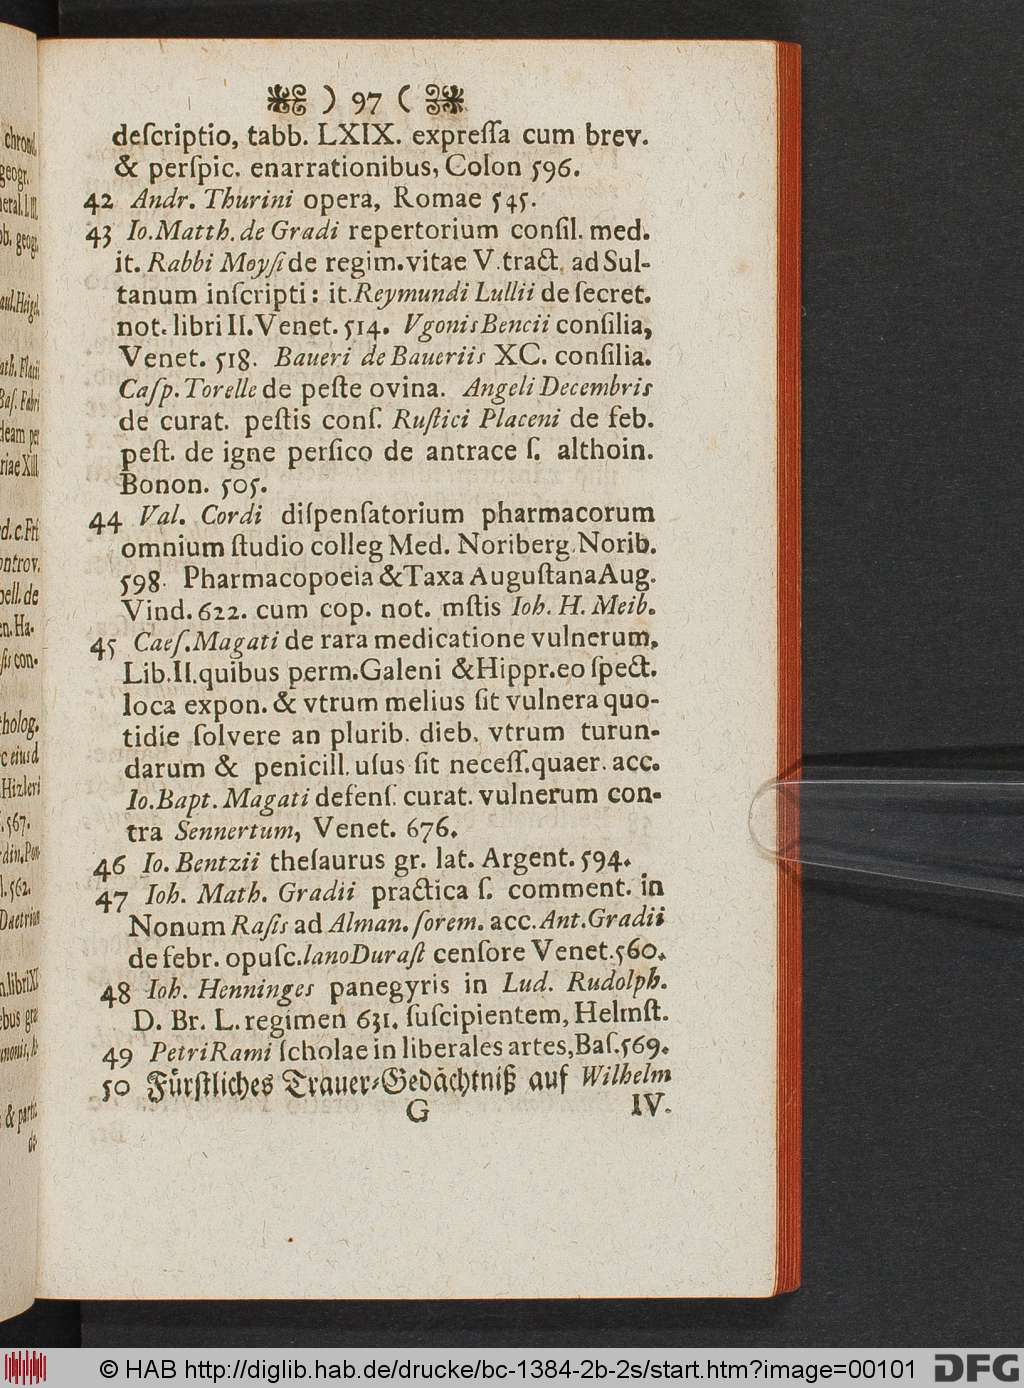 ) 97 (
deſcriptio, tabb. LXIX. expreſſa cum brev.
& perſpic. enarrationibus, Colon 596.
42 Andr. Thurini opera, Romae 545.
43 Io. Matth. de Gradi repertorium conſil. med.
it. Rabbi Moyſi de regim. vitae V. tract. ad Sul-
tanum inſcripti: it. Reymundi Lullii de ſecret.
not. libri II. Venet. 514. Vgonis Bencii conſilia,
Venet. 518. Baueri de Baueriis XC. conſilia.
Caſp. Torelle de peſte ovina. Angeli Decembris
de curat. peſtis conſ. Ruſtici Placeni de feb.
peſt. de igne perſico de antrace ſ. althoin.
Bonon. 505.
44 Val. Cordi diſpenſatorium pharmacorum
omnium ſtudio colleg Med. Noriberg. Norib.
598. Pharmacopoeia & Taxa Auguſtana Aug.
Vind. 622. cum cop. not. mſtis Ioh. H. Meib.
45 Caeſ. Magati de rara medicatione vulnerum,
Lib. II. quibus perm. Galeni & Hippr. eo ſpect.
loca expon. & vtrum melius ſit vulnera quo-
tidie ſolvere an plurib. dieb. vtrum turun-
darum & penicill. uſus ſit neceſſ. quaer. acc.
Io. Bapt. Magati defenſ. curat. vulnerum con-
tra Sennertum, Venet. 676.
46 Io. Bentzii theſaurus gr. lat. Argent. 594.
47 Ioh. Math. Gradii practica ſ. comment. in
Nonum Raſis ad Alman. ſorem. acc. Ant. Gradii
de febr. opuſc. Iano Duraſt cenſore Venet. 560.
48 Ioh. Henninges panegyris in Lud. Rudolph.
D. Br. L. regimen 631. ſuſcipientem, Helmſt.
49 Petri Rami ſcholae in liberales artes, Baſ. 569.
50 Fürſtliches Trauer-Gedächtniß auf Wilhelm
G IV.
chrond.
geogr.
ob. geogr.
aul. Heigel.
ath. Flacii
Baſ. Fabri
riae XIII
d. c. Fri
ontrov.
pell. de
en. Ha-
ſis con-
tholog.
c eiusd
Hizleri
. 567.
din. Pon
l. 562.
n. libri XI
ebus gra
& partic
de
© HAB http://diglib.hab.de/drucke/bc-1384-2b-2s/start.htm?image=00101
DFG